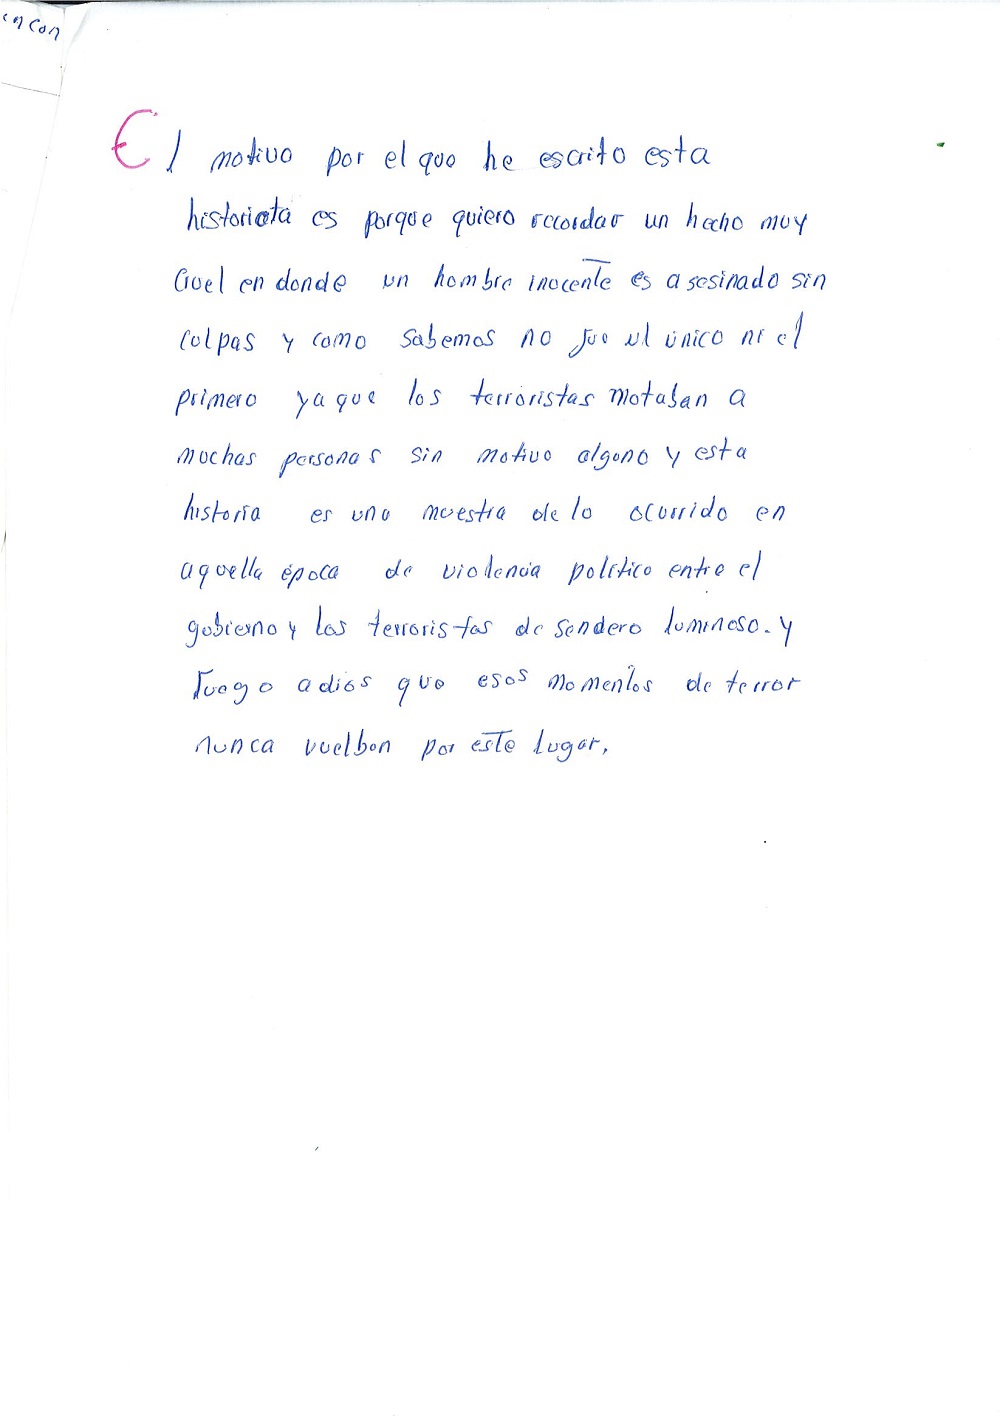 El motivo por el que he escrito esta
historieta es porque quiero recordar un hecho muy
cruel en donde un hombre inocente es asesinado sin
culpas y como sabemos no fue el único ni el
primero ya que los terroristas mataban a
muchas personas sin motivo alguno y esta
historia es una muestra de lo ocurrido en
aquella época de violencia político entre el
gobierno y los terroristas de sendero luminoso. y
ruego adios que esos momentos de terror
nunca vuelban por este lugar.